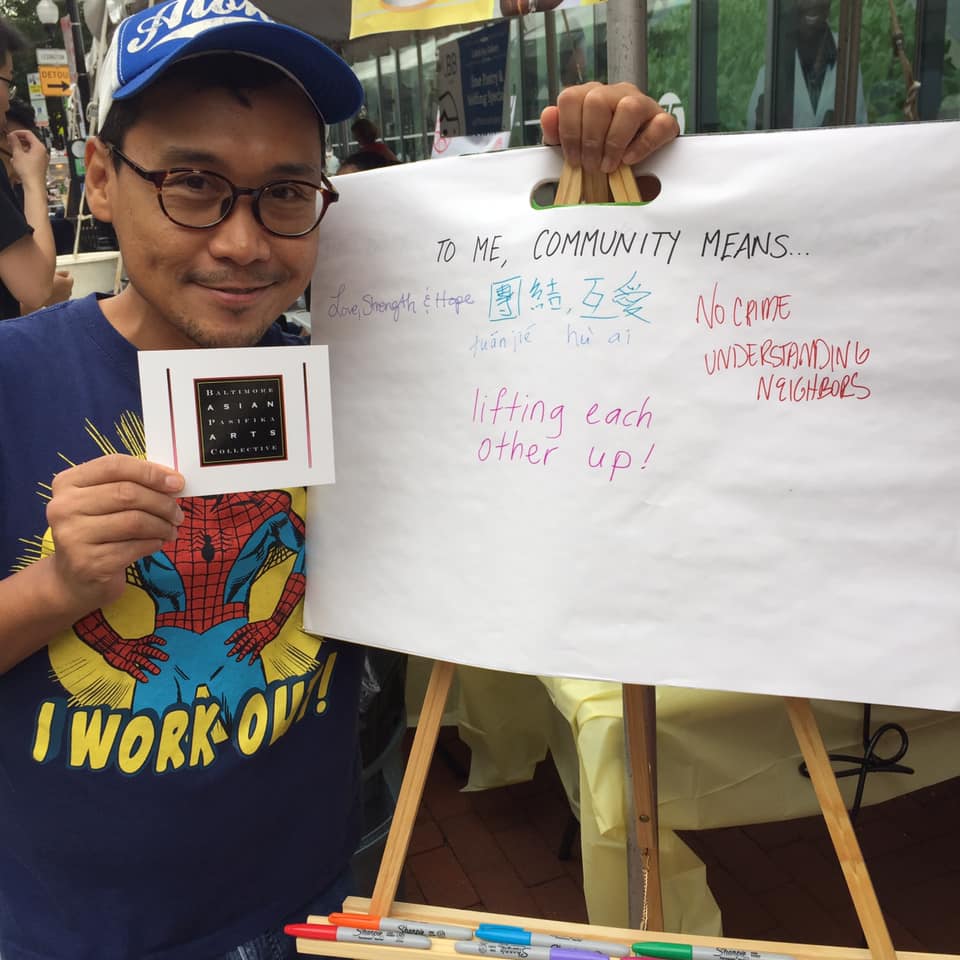 DETOUR
TO ME, COMMUNITY MEANS...
Love, Strength & Hope
團結,互愛
tuánjié hù ai
NO CRIME
UNDERSTANDING
NEIGHBORS
lifting each
other up!
BALTIMORE
ASIAN
PASIFIKA
ARTS
COLLECTIVE
I WORK OUT!
Sharpie
Sharpie
Sharpie
Sharpie